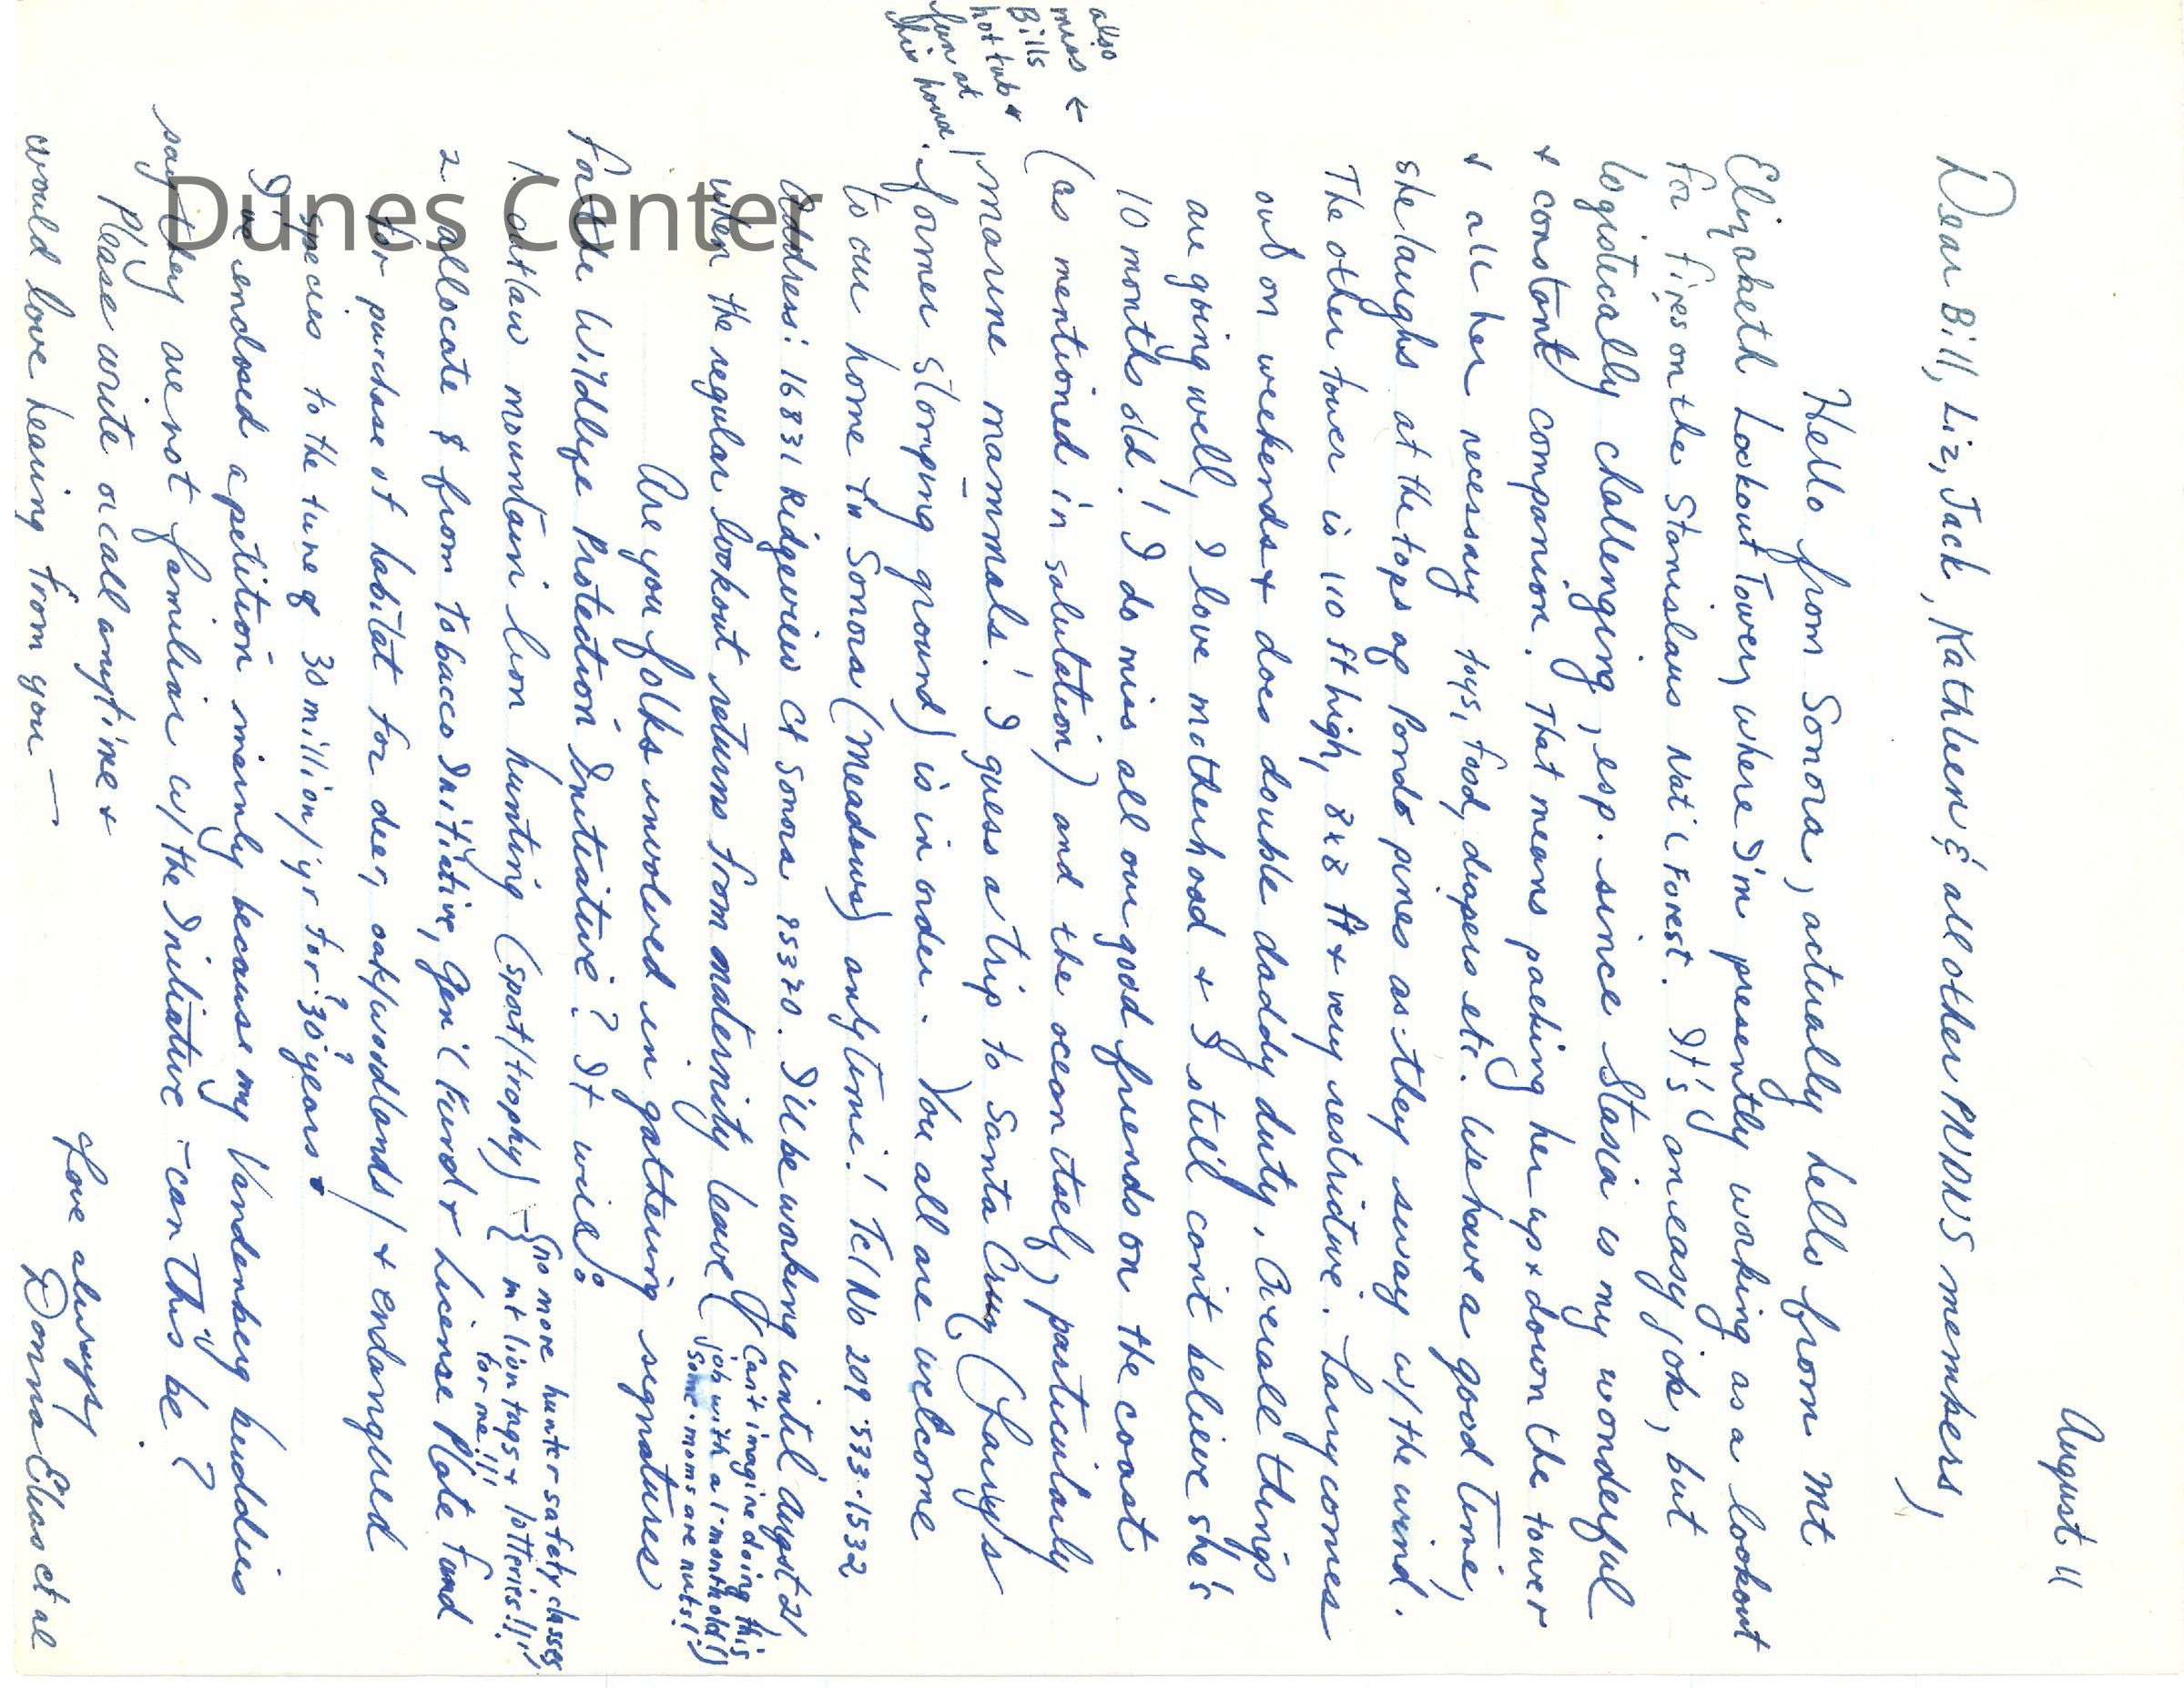 August 11
Dear Bill, Liz, Jack, Kathleen & all other PNDNS members,
Hello from Sonora, actually hello from Mt
Elizabeth Lookout Tower, where I'm presently working as a lookout
for fires on the Stanislaus Nat'l Forest. It's an easy job, but
logistically challenging, esp. since Stasia is my wonderful
+ constant companion. That means packing her up + down the tower
+ all her necessary toys, food, diapers etc. We have a good time,
she laughs at the tops of Pondo pines as they sway w/ the wind.
The other tower is 110 ft high, 8x8 ft + very restrictive. Larry comes
out on weekends + does double daddy duty. Overall things
are going well, I love motherhood + I still can't believe she's
10 months old! I do miss all our good friends on the coast
also
miss ←
Bills
hot tub +
fun at
his house.
(as mentioned in salutation) and the ocean itself, particularly
marine mammals! I guess a trip to Santa Cruz (Larry's
former stomping ground) is in order. You all are welcome
to our home in Sonora (Meadows) anytime! Tel No 209-533-1532
Address: 16831 Ridgeview Ct Sonora 95370. I'll be working until August 21
when the regular lookout returns from maternity leave
(Can't imagine doing this
job with a 1-month old!)
Some moms are nuts!)
Are you folks involved in gathering signatures
for the Wildlife Protection Initiative? It will:
1. outlaw mountain lion hunting (sport/trophy) –
{no more hunter safety classes,
mt lion tags + lotteries!!!
for me!!!
2. allocate $ from tobacco Initiative, Gen'l Fund + License Plate Fund
for purchase of habitat for deer, oak/woodlands/ + endangered
species to the tune of 30 million/yr for ?30? years.
I've enclosed a petition mainly because my Vandenberg buddies
say they are not familiar w/ the Initiative – can this be?
Please write or call anytime +
would love hearing from you —
Love always,
Donna Elias et al
Dunes Center